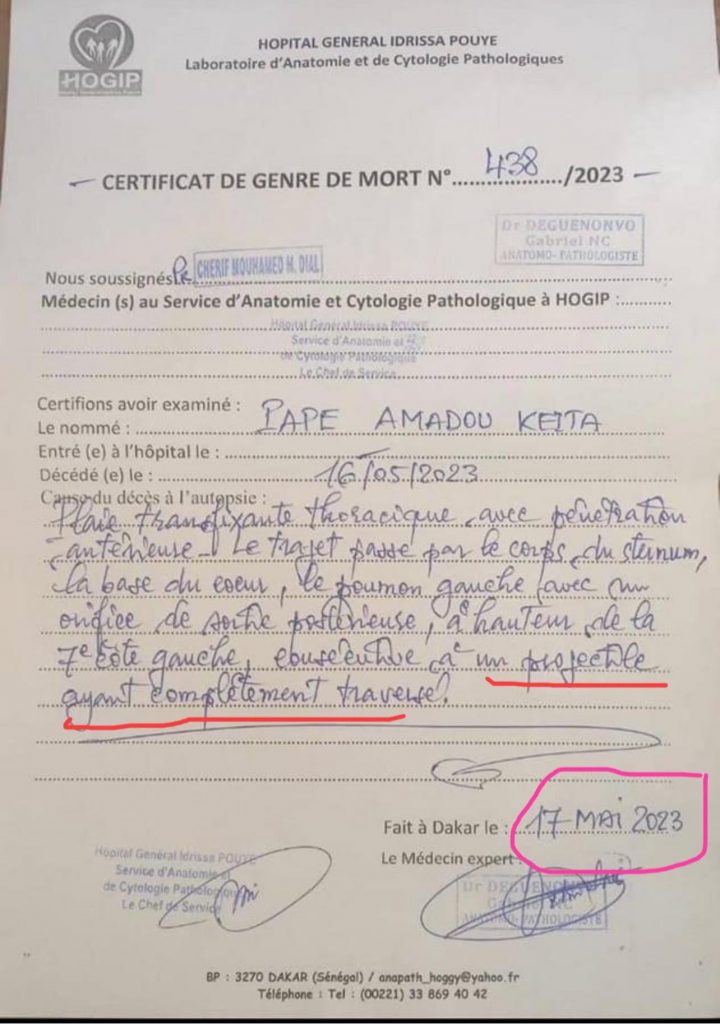 HOGIP
HOPITAL GENERAL IDRISSA POUYE
Laboratoire d'Anatomie et de Cytologie Pathologiques
CERTIFICAT DE GENRE DE MORT N°......438....../2023
Dr DEGUENONVO
Gabriel NC
ANATOMO-PATHOLOGISTE
Nous soussignés Dr CHERIF MOUHAMED M. DIAL
Médecin (s) au Service d'Anatomie et Cytologie Pathologique à HOGIP :
Hôpital Général Idrissa POUYE
Service d'Anatomie et
de Cytologie Pathologique
Le Chef de Service
Certifions avoir examiné :
Le nommé : PAPE AMADOU KEITA
Entré (e) à l'hôpital le :
Décédé (e) le : 16/05/2023
Cause du décès à l'autopsie :
Plaie transfixante thoracique avec pénétration
antérieure. Le trajet passe par le corps du sternum,
la base du coeur, le poumon gauche avec un
orifice de sortie postérieure, à hauteur de la
7e côte gauche, consécutive à un projectile
ayant complètement traversé.
Fait à Dakar le : 17 MAI 2023
Le Médecin expert :
Hôpital Général Idrissa POUYE
Service d'Anatomie et
de Cytologie Pathologique
Le Chef de Service
Dr DEGUENONVO
Gabriel NC
ANATOMO-PATHOLOGISTE
BP : 3270 DAKAR (Sénégal) / anapath_hoggy@yahoo.fr
Téléphone : Tel : (00221) 33 869 40 42